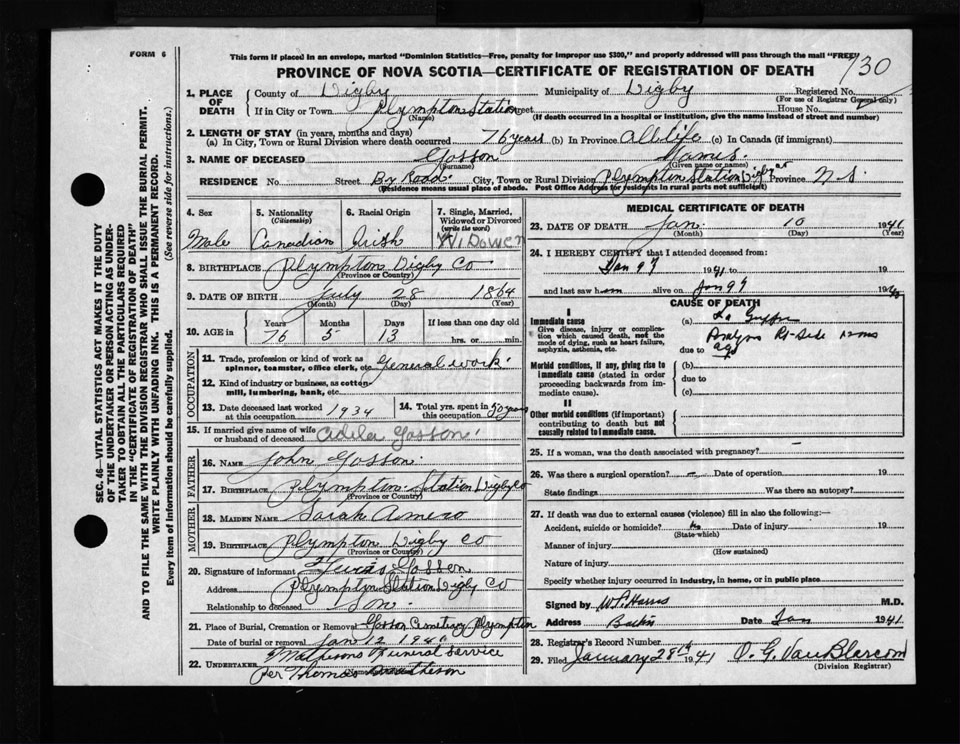 FORM 6
This form if placed in an envelope, marked "Dominion Statistics—Free, penalty for improper use $300," and properly addressed will pass through the mail "FREE"
130
PROVINCE OF NOVA SCOTIA—CERTIFICATE OF REGISTRATION OF DEATH
1. PLACE OF DEATH County of Digby Municipality of Digby Registered No.
(For use of Registrar General only)
If in City or Town Plympton Station Street House No.
(Name) (If death occurred in a hospital or institution, give the name instead of street and number)
2. LENGTH OF STAY (in years, months and days)
(a) In City, Town or Rural Division where death occurred 76 years (b) In Province All life (c) In Canada (if immigrant)
3. NAME OF DECEASED Gosson James
(Surname) (Given name or names)
RESIDENCE No. Street By Road City, Town or Rural Division Plympton Station Digby Co Province N.S.
(Residence means usual place of abode. Post Office Address for residents in rural parts not sufficient)
4. Sex Male
5. Nationality (Citizenship) Canadian
6. Racial Origin Irish
7. Single, Married, Widowed or Divorced (write the word) Widower
8. BIRTHPLACE Plympton Digby Co
(Province or Country)
9. DATE OF BIRTH July 28 1864
(Month) (Day) (Year)
10. AGE in Years Months Days If less than one day
76 5 13 hrs. or min.
OCCUPATION
11. Trade, profession or kind of work as spinner, teamster, office clerk, etc. General work
12. Kind of industry or business, as cotton mill, lumbering, bank, etc.
13. Date deceased last worked at this occupation 1934
14. Total yrs. spent in this occupation 50 years
15. If married give name of wife or husband of deceased Adela Gosson
FATHER
16. NAME John Gosson
17. BIRTHPLACE Plympton Station Digby Co
(Province or Country)
MOTHER
18. MAIDEN NAME Sarah Amero
19. BIRTHPLACE Plympton Digby Co
(Province or Country)
20. Signature of informant Gosson
Address Plympton Station Digby Co
Relationship to deceased Son
21. Place of Burial, Cremation or Removal Gosson Cemetary Plympton
Date of burial or removal Jan 12 194
22. UNDERTAKER Funeral Service
Per Thomas
MEDICAL CERTIFICATE OF DEATH
23. DATE OF DEATH Jan. 10 1941
(Month) (Day) (Year)
24. I HEREBY CERTIFY that I attended deceased from:
Jan 9 1941 to 19
and last saw him alive on Jan 9 19
CAUSE OF DEATH
I
Immediate cause
Give disease, injury or complication which caused death, not the mode of dying, such as heart failure, asphyxia, asthenia, etc.
(a) La Grippe
due to
Morbid conditions, if any, giving rise to immediate cause (stated in order proceeding backwards from immediate cause).
(b)
due to
(c)
II
Other morbid conditions (if important) contributing to death but not causally related to immediate cause.
25. If a woman, was the death associated with pregnancy?
26. Was there a surgical operation? – Date of operation 19
State findings Was there an autopsy?
27. If death was due to external causes (violence) fill in also the following:—
Accident, suicide or homicide? no Date of injury 19
(State which)
Manner of injury
(How sustained)
Nature of injury
Specify whether injury occurred in industry, in home, or in public place
Signed by W. P. Harris M.D.
Address Date Jan 1941
28. Registrar's Record Number
29. Filed January 28th 1941 O. G. Van Blarcom
(Division Registrar)
SEC. 46—VITAL STATISTICS ACT MAKES IT THE DUTY OF THE UNDERTAKER OR PERSON ACTING AS UNDERTAKER TO OBTAIN ALL THE PARTICULARS REQUIRED IN THE "CERTIFICATE OF REGISTRATION OF DEATH"
AND TO FILE THE SAME WITH THE DIVISION REGISTRAR WHO SHALL ISSUE THE BURIAL PERMIT.
WRITE PLAINLY WITH UNFADING INK. THIS IS A PERMANENT RECORD.
Every item of information should be carefully supplied. (See reverse side for instructions.)